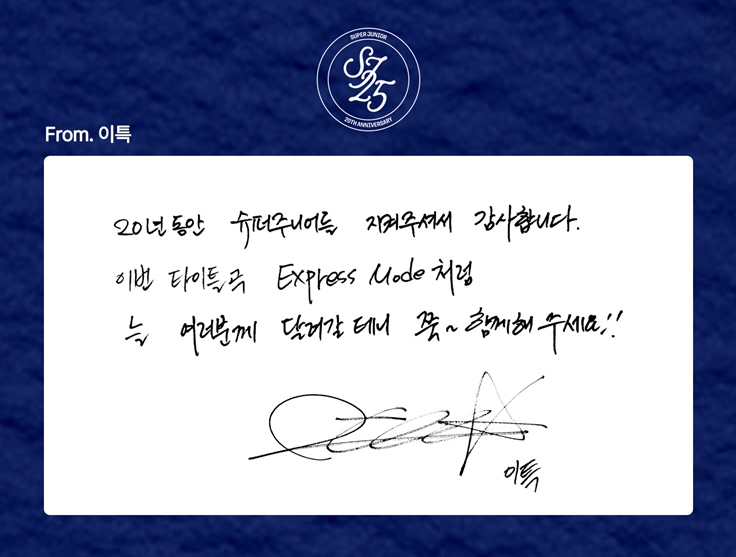 SUPER JUNIOR
SJ
25
20TH ANNIVERSARY
From. 이특
20년 동안 슈퍼주니어를 지켜주셔서 감사합니다.
이번 타이틀곡 Express Mode처럼
늘 여러분께 달려갈테니 쭉~ 함께해 주세요!!
이특